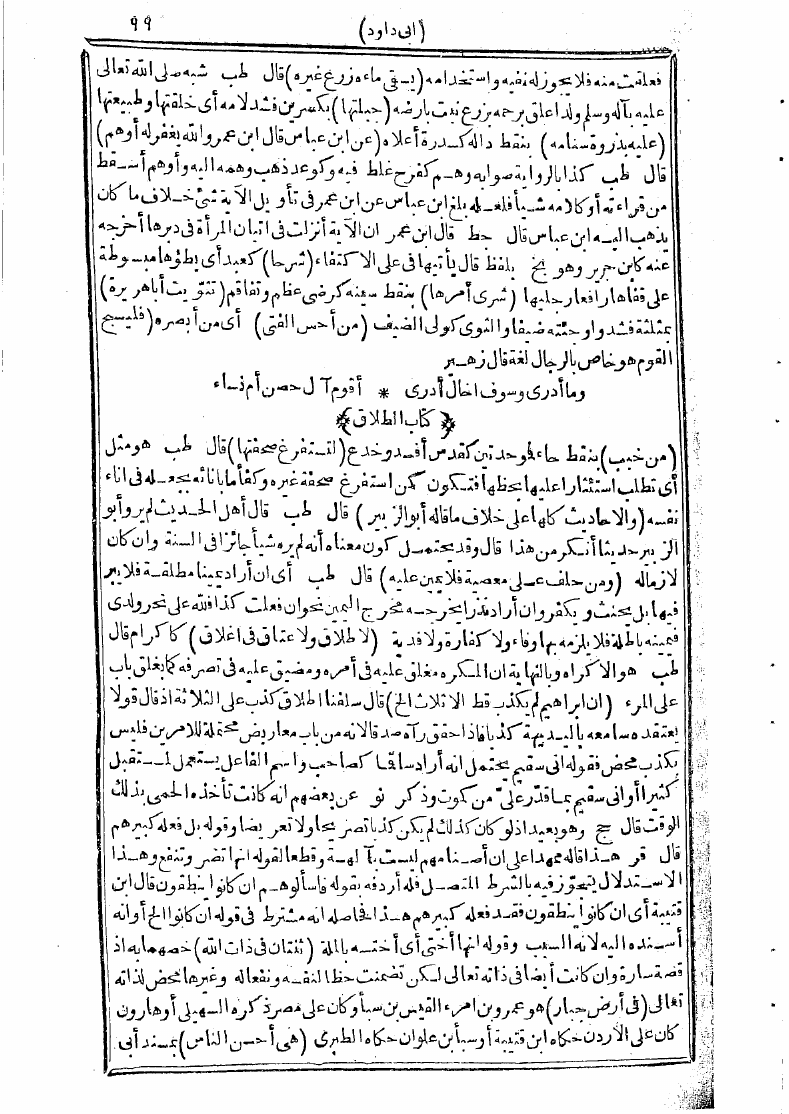 (ابى داود) ٩٩
فعلقت منه فلا يجوز له نفيه واستخدامه (يسقى ماءه زرع غيره) قال طب شبه صلى الله تعالى
عليه بآله وسلم ولدا علق برحمه بزرع نبت بارضه (جبلتها) بكسرين فشد لامه أى خلقتها وطبيعتها
(عليه بذروة سنامه) بنقط داله كسدرة أعلاه (عن ابن عباس قال ابن عمر والله يغفر له أوهم)
قال طب كذا بالرواية صوابه وهم كفرح غلط فيه وكوعد ذهب وهمه اليه وأوهم أسقط
من قراءته أو كلامه شيأ فلعله بلغ ابن عباس عن ابن عمر فى تأويل الآية شئ خلاف ما كان
يذهب اليه ابن عباس قال حط قال ابن عمر ان الآية أنزلت فى اتيان المرأة فى دبرها أخرجه
عنه كابن جرير وهو بخ بلفظ قال يأتيها فى على الاكتفاء (شرحا) كعبد أى يطؤها مبسوطة
على قفاها رافعا رجليها (شرى أمرها) بنقط سينه كرضى عظم وتفاقم (تثويت أباهريرة)
بمثلثة فشد واو جئته ضيفا والثوى كولى الضيف (من أحس الفتى) أى من أبصره (فليسبح
القوم هو خاص بالرجال لغة قال زهير
وما أدرى وسوف اخال أدرى * أقوم آل حصن أم نساء
﴿كتاب الطلاق﴾
(من خبب) بنقط حاء فوحدتين كقدس أفسد وخدع (لتستفرغ صحفتها) قال طب هو مثل
أى تطلب استئثارا عليها بحظها فتكون كمن استفرغ صحفة غيره وكفأ ما بانائه يجعله فى اناء
نفسه (والاحاديث كلها على خلاف ما قاله أبو الزبير) قال طب قال أهل الحديث لم يرو أبو
الزبير حديثا أنكر من هذا قال وقد يحتمل كون معناه أنه لم يره شيأ جائزا فى السنة وان كان
لازما له (ومن حلف على معصية فلا يمين عليه) قال طب أى ان أراد يمينا مطلقة فلا يبر
فيها بل يحنث ويكفر وان أراد نذرا يخرجه مخرج اليمين نحو ان فعلت كذا فلله على نحر ولدى
فيمينه باطلة فلا يلزمه بها وفاء ولا كفارة ولا فدية (لا طلاق ولا عتاق فى اغلاق) كاكرام قال
طب هو الاكراه وبالنهاية ان المكره مغلق عليه فى أمره ومضيق عليه فى تصرفه كما يغلق باب
على المرء (ان ابراهيم لم يكذب قط الا ثلاث الخ) قال سلفنا اطلاق كذب على الثلاثة اذ قال قولا
يعتقده سامعه بالبديهة كذبا فاذا حقق رآه صدقا لانه من باب معاريض محتملة للامرين فليس
بكذب محض فقوله انى سقيم يحتمل انه أراد سأسقم كصاحب واسم الفاعل يستعمل لمستقبل
كثيرا أو انى سقيم بما قدر على من كموت وذكر نو عن بعضهم انه كانت تأخذه الحمى بذلك
الوقت قال حج وهو بعيد اذ لو كان كذلك لم يكن كذبا تصريحا ولا تعريضا وقوله بل فعله كبيرهم
قال قر هذا قاله ممهدا على ان أصنامهم ليست بآلهة وقطعا لقوله انها تضر وتنفع وهذا
الاستدلال يتجوز فيه بالشرط المتصل فله أردفه بقوله فاسألوهم ان كانوا ينطقون قال ابن
قتيبة أى ان كانوا ينطقون فقد فعله كبيرهم هذا فحاصله انه مشترط فى قوله ان كانوا الخ أو انه
أسنده اليه لانه السبب وقوله انها أختى أى أخته بالملة (ثنتان فى ذات الله) خصهما به اذ
قصة سارة وان كانت أيضا فى ذاته تعالى لكن تضمنت حظا لنفسه ونفعا له وغيرها محض لذاته
تعالى (فى أرض جبار) هو عمرو بن امرء القيس بن سبأ وكان على مصر ذكره السهيلى أو هارون
كان على الأردن حكاه ابن قتيبة أو سبأ بن علوان حكاه الطبرى (هى أحسن الناس) بمسند أبى